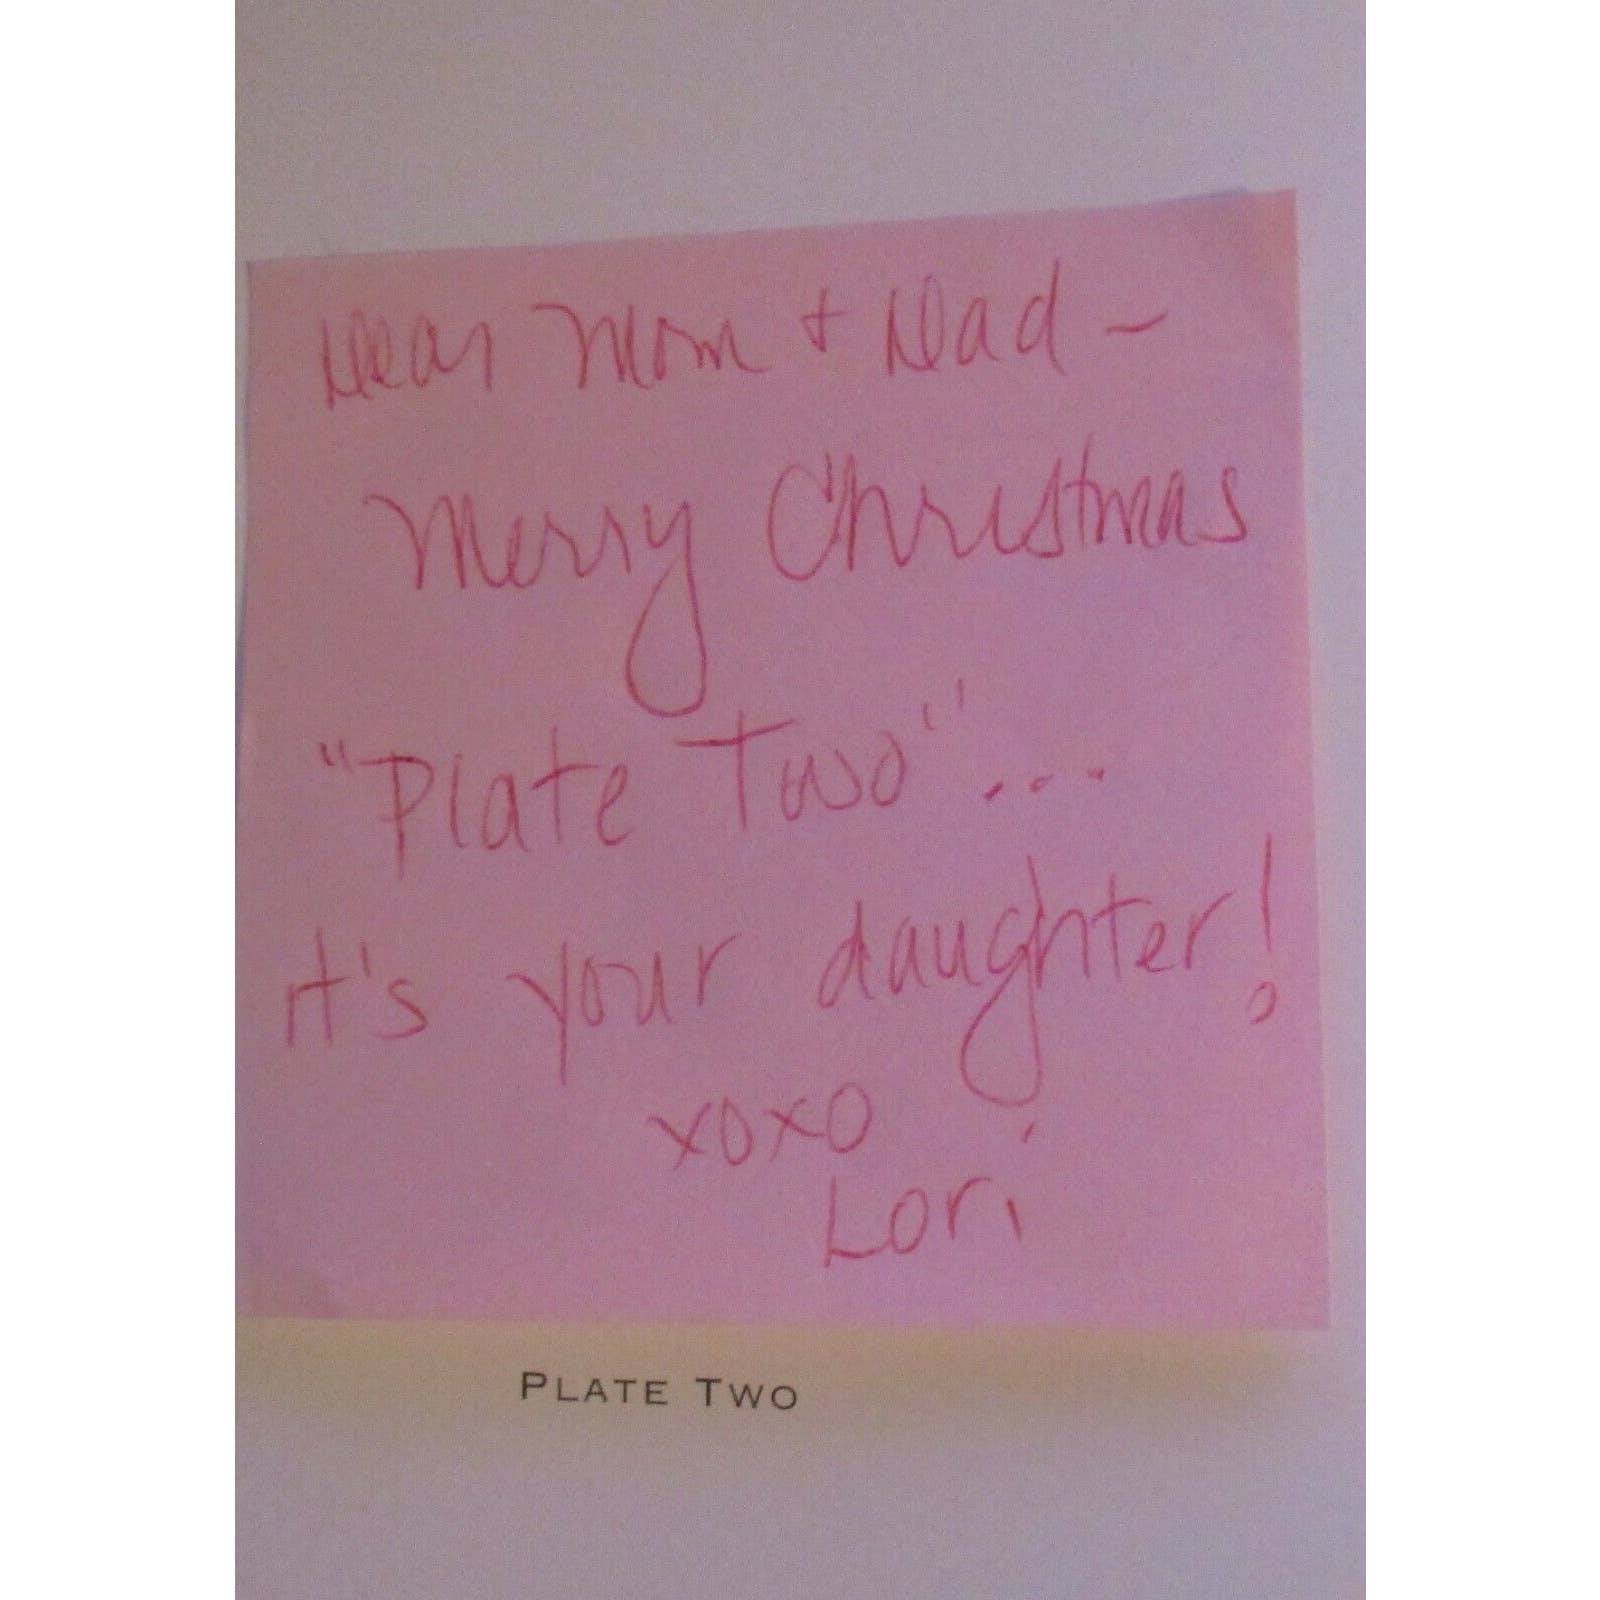 Dear Mom + Dad -
Merry Christmas
"Plate Two"...
it's your daughter!
xoxo
Lori
PLATE TWO